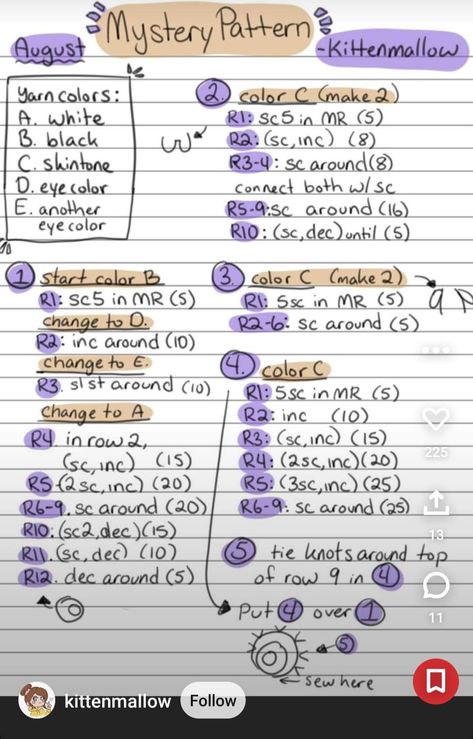 August
Mystery Pattern
-Kittenmallow
Yarn colors:
A. white
B. black
C. skintone
D. eye color
E. another
eye color
1 start color B
R1: sc5 in MR (5)
change to D.
R2: inc around (10)
change to E.
R3. slst around (10)
change to A
R4. in row 2,
(sc, inc) (15)
R5-(2sc, inc) (20)
R6-9. sc around (20)
R10: (sc2, dec) (15)
R11. (sc, dec) (10)
R12. dec around (5)
2. color C (make 2)
R1: sc5 in MR (5)
R2: (sc, inc) (8)
R3-4: sc around (8)
connect both w/sc
R5-9: sc around (16)
R10: (sc, dec) until (5)
3. color C (make 2)
R1: 5sc in MR (5)
R2-6: sc around (5)
4. color C
R1: 5sc in MR (5)
R2: inc (10)
R3: (sc, inc) (15)
R4: (2sc, inc) (20)
R5: (3sc, inc) (25)
R6-9: sc around (25)
5 tie knots around top
of row 9 in 4
Put 4 over 1
5
sew here
225
13
11
kittenmallow
Follow